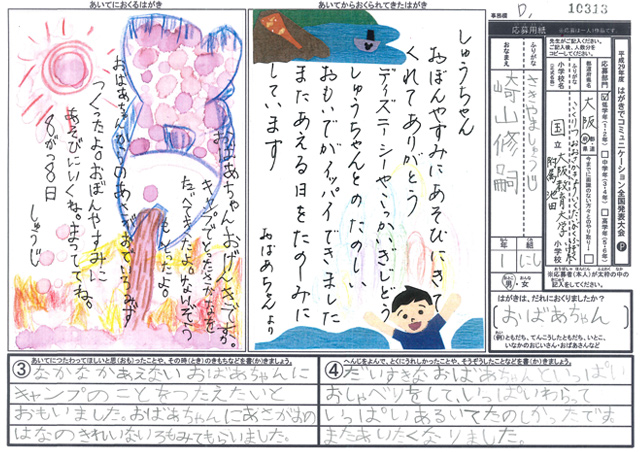 あいてにおくるはがき
おばあちゃんおげんきですか。
キャンプでつったさかなを
たべてきたよ。
もらったよ。
つくったよ。おぼんやすみに
あそびにいくね。まっててね。
8がつ8日
しゅうじ
あいてからおくられてきたはがき
しゅうちゃん
おぼんやすみにあそびにきて
くれてありがとう
ディズニーシーやこっかいぎじどう
しゅうちゃんとのたのしい
おもいでがイッパイできました
またあえる日をたのしみに
しています
おばあちゃんより
事務欄
D,
10313
応募用紙
※応募は一人1作品です。
先生がご記入ください。
ご記入後、人数分を
コピーしてください。
平成29年度 はがきでコミュニケーション全国発表大会 P
応募部門
低学年(1・2年)
中学年(3・4年)
高学年(5・6年)
都道府県名
大阪
小学校名
国立大阪教育大学附属池田
小学校
おなまえ
ふりがな
さきやましゅうじ
﨑山修嗣
年
1
組
にし
男・女
※応募者(本人)が太枠の中の
記入をしてください。
はがきは、だれにおくりましたか?
おばあちゃん
(例)ともだち、てんこうしたともだち、いとこ、
いなかのおじいさん・おばあさんなど
あいてにつたわってほしいと思(おも)ったことや、その時(とき)のきもちなどを書(か)きましょう。
③なかなかあえないおばあちゃんに
キャンプのことをつたえたいと
おもいました。おばあちゃんにあさがおの
はなのきれいないろもみてもらいました。
へんじをよんで、とくにうれしかったことや、そうぞうしたことなどを書(か)きましょう。
④だいすきなおばあちゃんといっぱい
おしゃべりをして、いっぱいわらって
いっぱいあるいてたのしかったです。
またあいたくなりました。